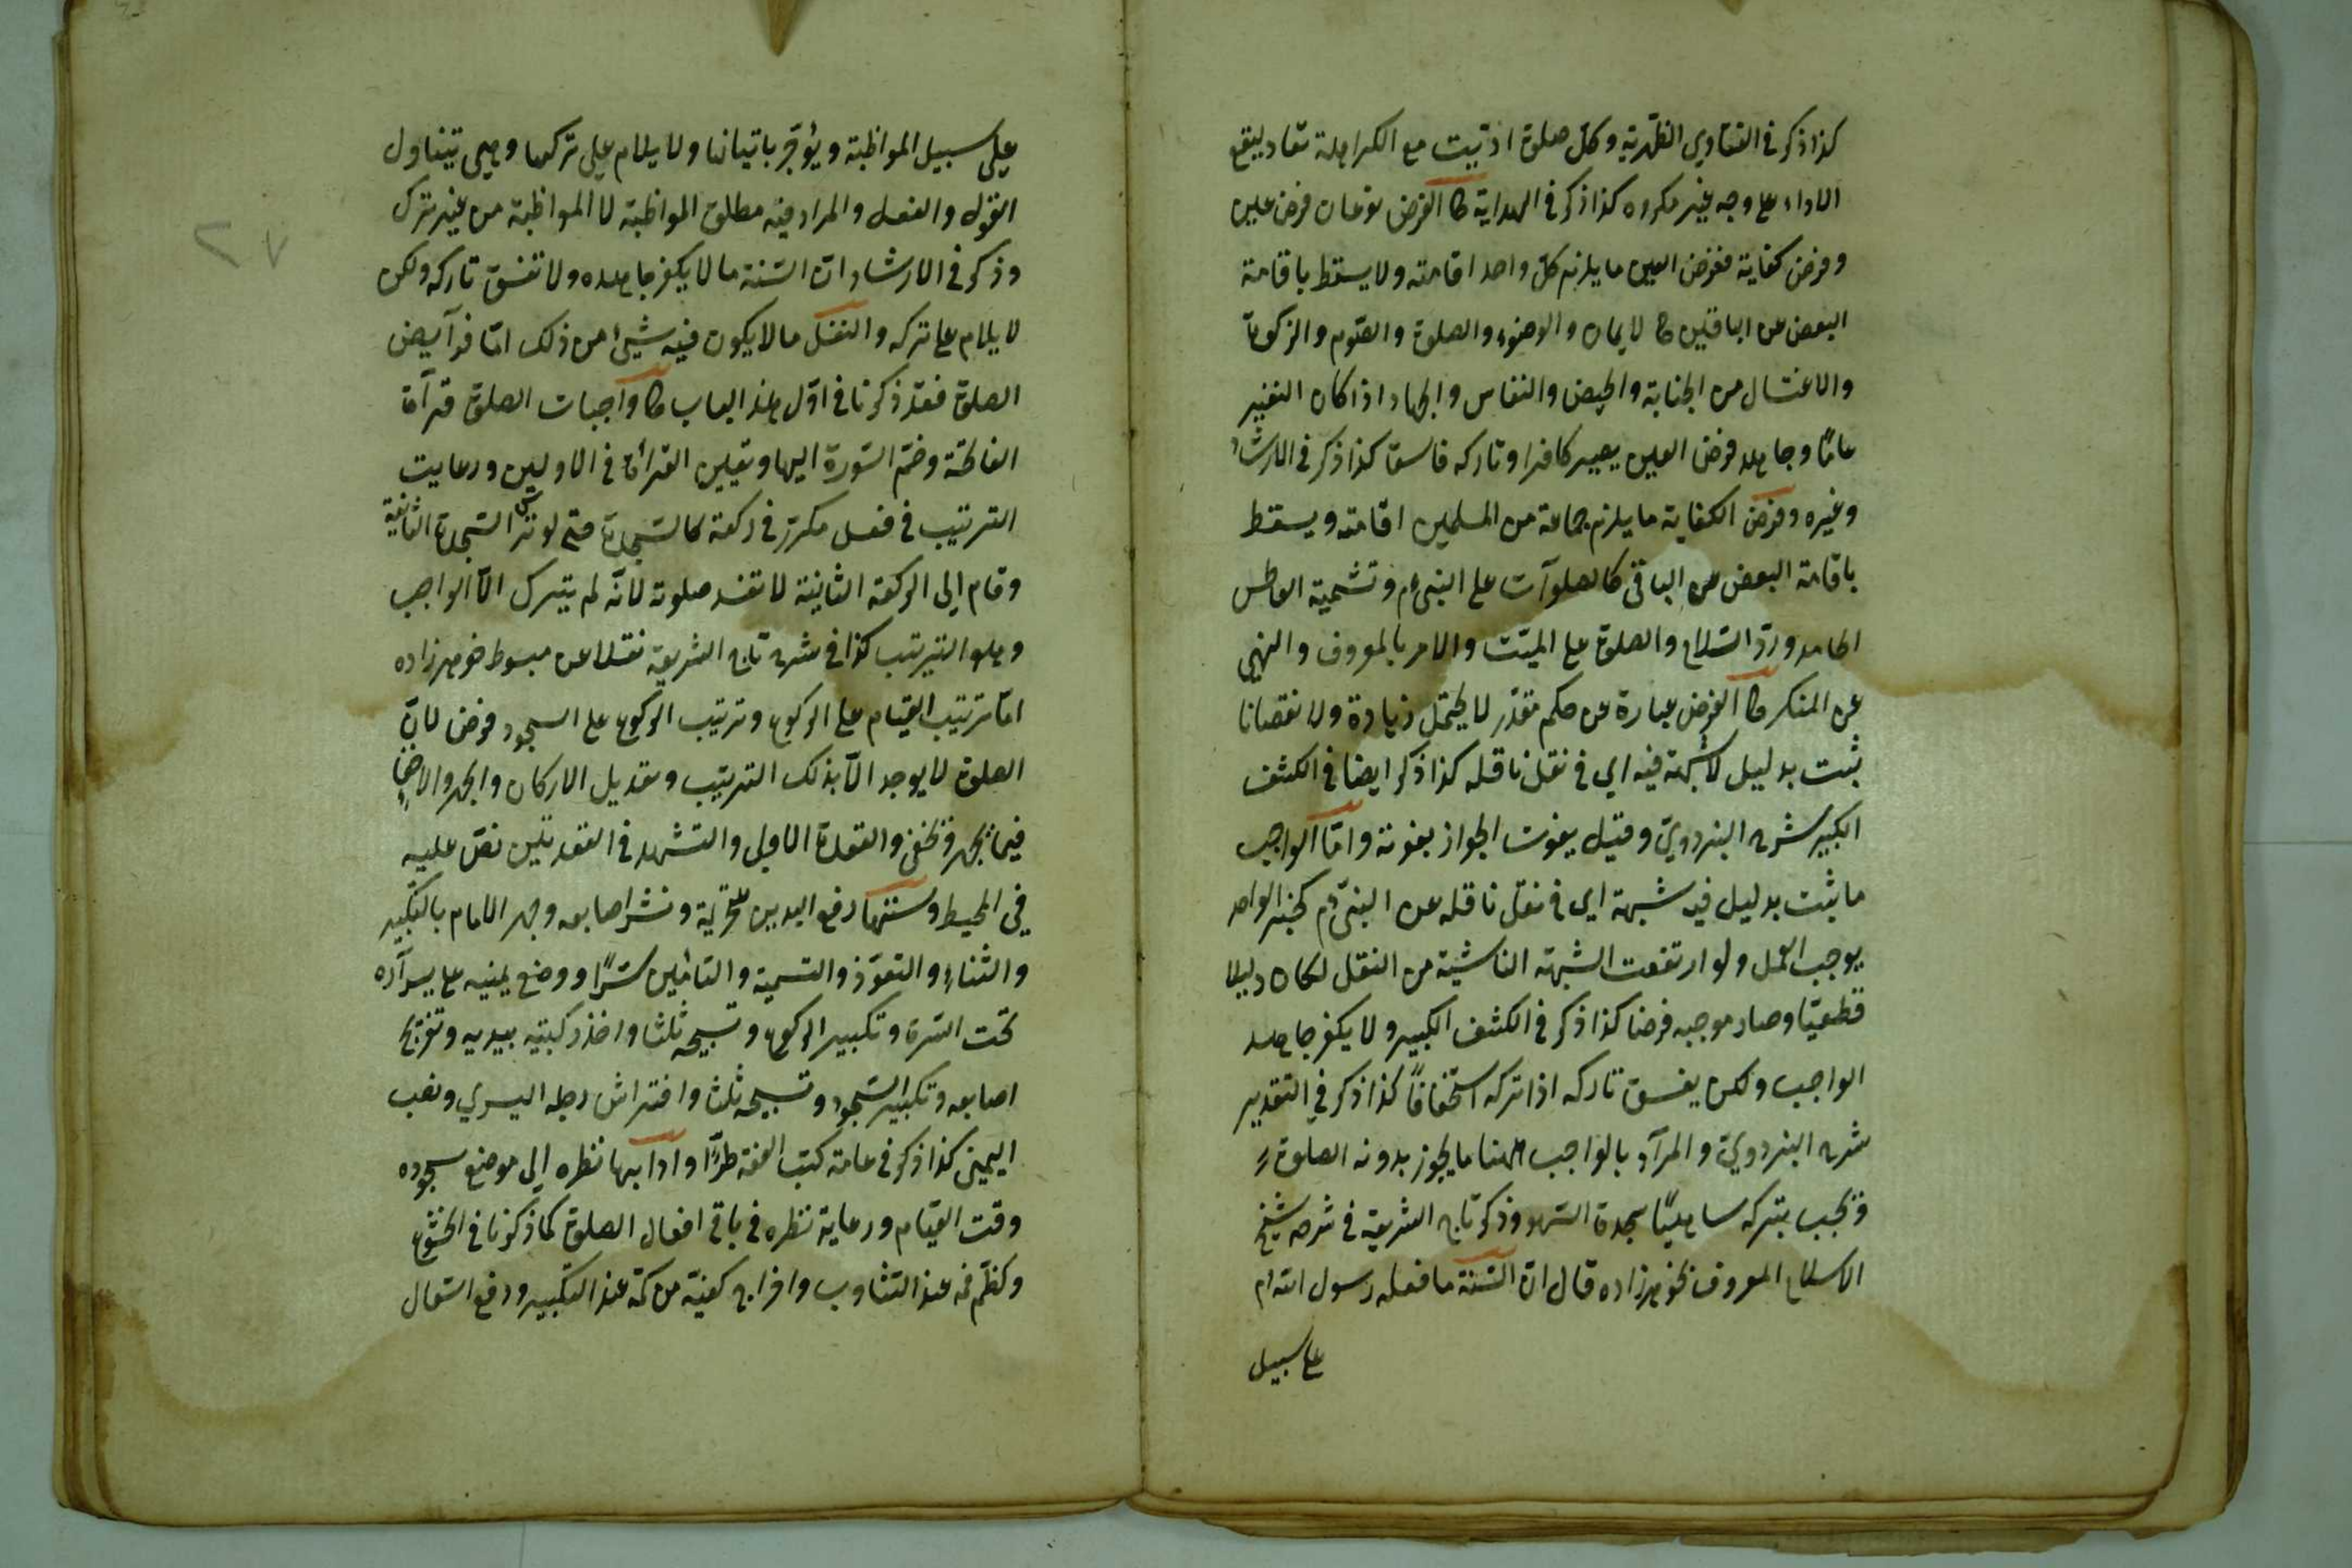 كذا ذكر في الفتاوى الظهرية وكل صلوة اديت مع الكراهة تعاد ليقع
الاداء على وجه غير مكروه كذا ذكر في الهداية الفرض نوعان فرض عين
وفرض كفاية ففرض العين ما يلزم كل واحد اقامته ولا يسقط باقامة
البعض عن الباقين كالايمان والوضوء والصلوة والصوم والزكوة
والاغتسال من الجنابة والحيض والنفاس والجهاد اذا كان النفير
عامًا وجاهد فرض العين يصير كافرا وتاركه فاسق كذا ذكر في الارشاد
وغيره وفرض الكفاية ما يلزم جماعة من المسلمين اقامته ويسقط
باقامة البعض عن الباقي كالصلوات على النبي عم وتشميت العاطس
الحامد وردّ السّلام والصلوة على الميّت والامر بالمعروف والنهي
عن المنكر الفرض عبارة عن حكم مقدّر لا يحتمل زيادة ولا نقصانا
ثبت بدليل لا شبهة فيه اي في نقل ناقله كذا ذكر ايضا في الكشف
الكبير شرح البزدويّ وقيل يفوت الجواز بفوته وامّا الواجب
ما ثبت بدليل فيه شبهة اى في نقل ناقله عن النبيّ عم كخبر الواحد
يوجب العمل ولو ارتفعت الشبهة الناشية من النقل لكان دليلا
قطعيّا وصار موجبه فرضا كذا ذكر في الكشف الكبير ولا يكفر جاحد
الواجب ولكن يفسق تاركه اذا تركه استخفافًا كذا ذكر في التقدير
شرح البزدويّ والمراد بالواجب ههنا ما يجوز بدونه الصلوة
وتجب بتركه ساهيًا سجدة السّهو وذكر تاج الشريعة في شرحه شيخ
الاسلام المعروف بخوهرزاده قال انّ السّنة ما فعله رسول الله عم
على سبيل
على سبيل المواظبة ويؤجر باتيانها ولا يلام على تركها وهي تتناول
القول والفعل والمراد فيه مطلق المواظبة لا المواظبة من غير ترك
وذكر في الارشاد انّ السّنة ما لا يكفر جاحده ولا تفسق تاركه ولكن
لا يلام على تركه والنفل ما لا يكون فيه شيئ من ذلك امّا فرآيض
الصلوة فقد ذكرنا في اوّل هذا الباب واجبات الصلوة قرآة
الفاتحة وضمّ السّورة اليها وتعيين القرأة في الاوليين ورعايت
الترتيب في فعل مكرّر في ركعة كالسّجدة حتى لو ترك السّجدة الثانية
وقام إلى الركعة الثانية لا تفسد صلوته لانّه لم يترك الاّ الواجب
وهو الترتيب كذا في شرح تاج الشريعة نقلا عن مبسوط خوهرزاده
امّا ترتيب القيام على الركوع وترتيب الركوع على السجود فرض لانّ
الصلوة لا يوجد الاّ بذلك الترتيب وتعديل الاركان والجهر والاخفاء
فيما يجهر ويخفى والقعدة الاولى والتشهد في القعدتين نصّ عليه
في المحيط وسننها رفع اليدين للتحريمة ونشر اصابعه وجهر الامام بالتكبير
والثناء والتعوّذ والتسمية والتامين سرًّا ووضع يمينه على يساره
تحت السّرة وتكبير الركوع وتسبيحه ثلثا واخذ ركبتيه بيديه وتفريج
اصابعه وتكبير السّجود وتسبيحه ثلثا وافتراش رجله اليسرى ونصب
اليمنى كذا ذكر في عامة كتب الفقه طرًّا وادابها نظره إلى موضع سجوده
وقت القيام ورعاية نظره في باقي افعال الصلوة كما ذكرنا في الخشوع
وكظم فمه عند التثاوب واخراج كفيّه من كمّه عند التكبير ودفع السّعال
٢٧